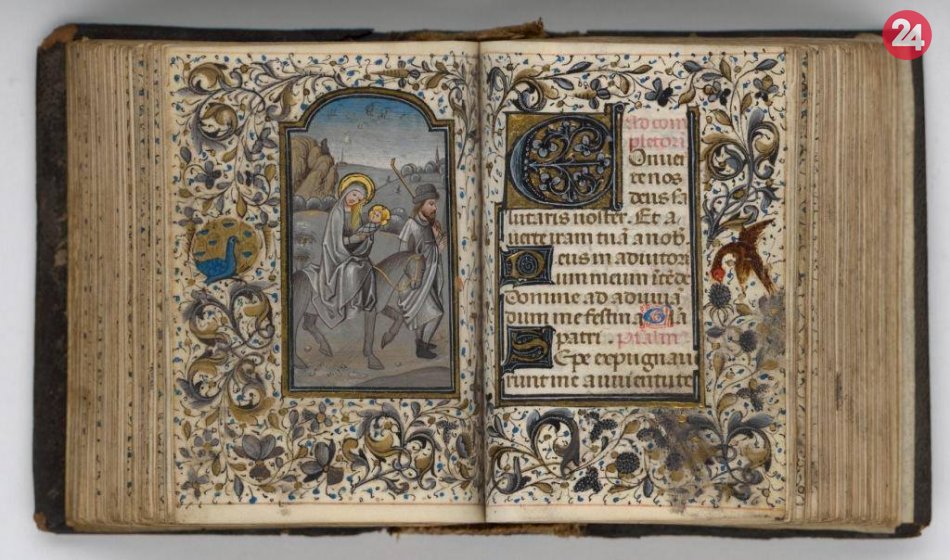 24
Ad com
pletori
Onver
te nos
deus sa
lutaris noster. Et a
verte iram tuā a nob̄
eus in adiutori
um meum ītēde
Domine ad adiuvā
dum me festina G ľa
patri. Psalm
Epe expugnav
runt me a iuventute